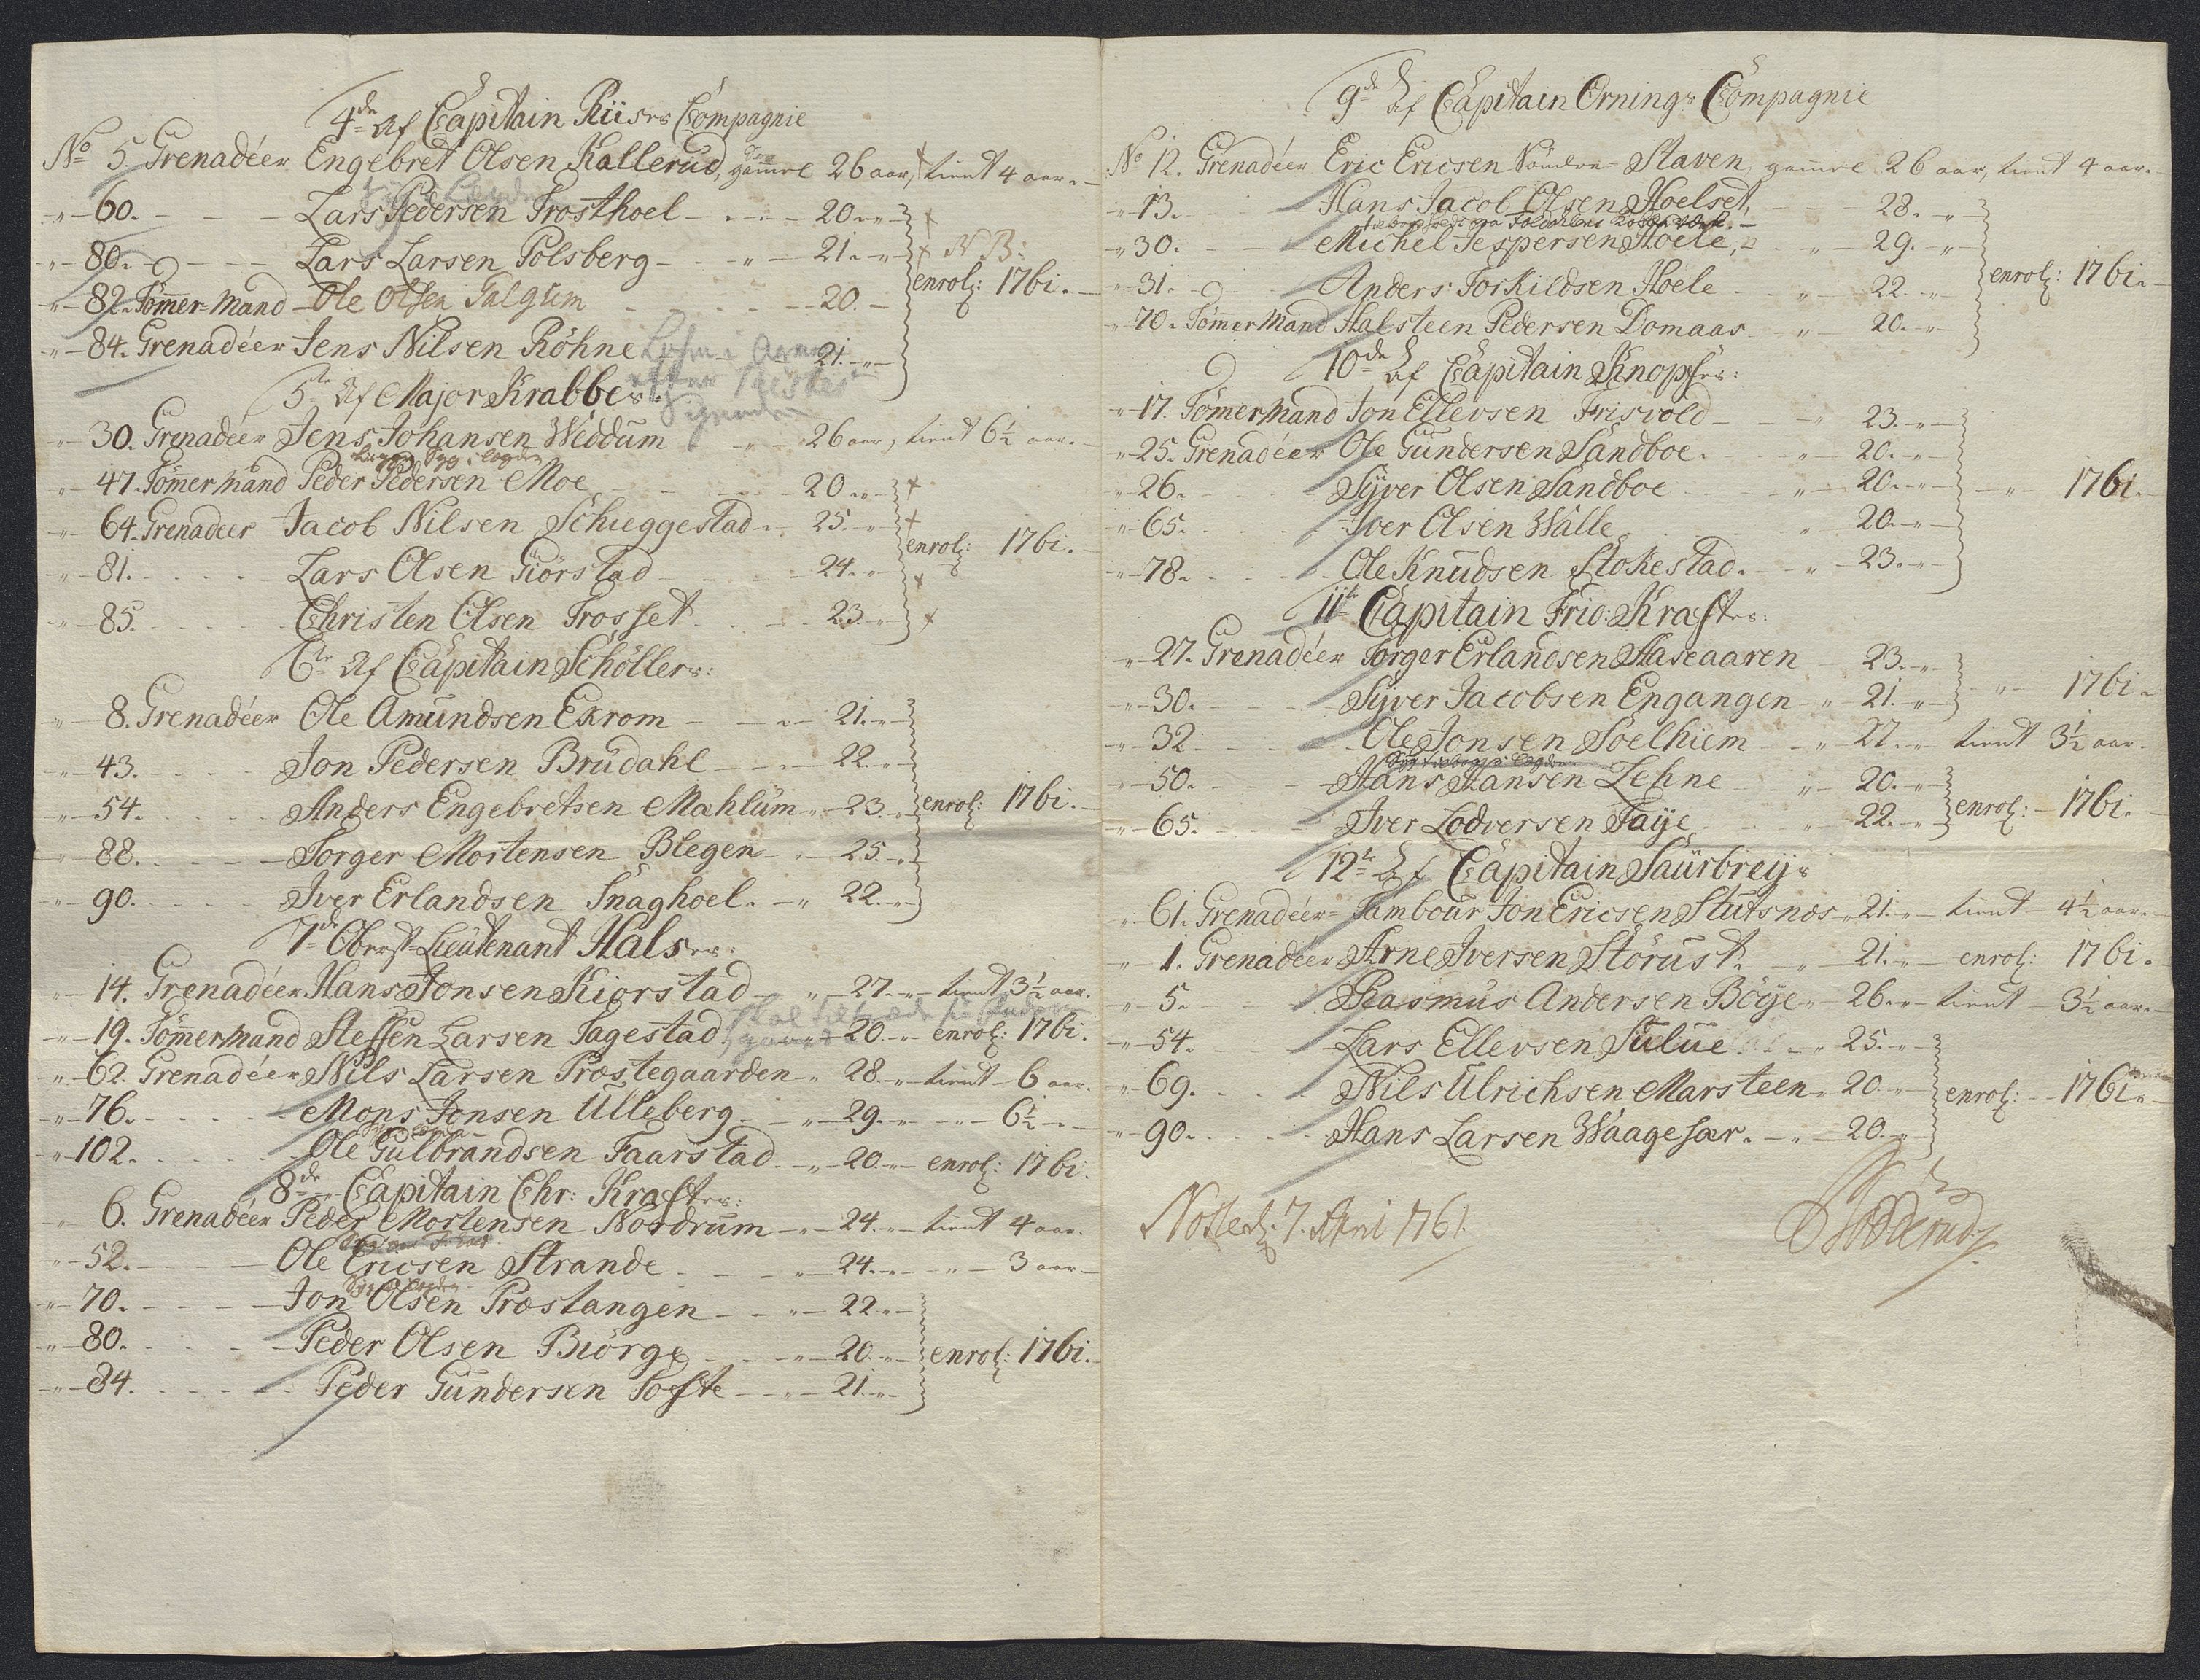 4de Af Capitain Riises Compagnie
No 5. Grenadéer Engebret Olsen Kallerud, gamel 26 aar, tient 4 aar.
60. Lars Pedersen Trosthoel 20.
80. Lars Larsen Polsberg 21. N.B:
82. Tömer-Mand Ole Olsen Talgum 20. enrol: 1761.
84. Grenadéer Jens Nilsen Röhne 21.
5te Af Major Krabbes:
30. Grenadéer Jens Johansen Weddum 26 aar, tient 6½ aar.
47. Tömermand Peder Pedersen Moe 20.
64. Grenadéer Jacob Nilsen Schieggestad 25.
enrol: 1761.
81. Lars Olsen Giörstad 24.
85. Christen Olsen Trosset 23.
6te Af Capitain Schöllers:
8. Grenadéer Ole Amundsen Exrom 21.
43. Jon Pedersen Brudahl 22.
54. Anders Engebretsen Mahlum 23. enrol: 1761.
88. Torger Mortensen Blegen 25.
90. Iver Erlandsen Snaghoel. 22.
7de Oberst-Lieutenant Halses:
14. Grenadéer Hans Jonsen Kiorstad 27. tient 3½ aar.
19. Tömermand Steffen Larsen Tagestad 20. enrol: 1761.
62. Grenadéer Nils Larsen Præstegaarden 28. tient 6 aar.
76. Mons Jonsen Ulleberg 29. 6½
102. Ole Gulbrandsen Faarstad 20. enrol: 1761.
8de Capitain Chr: Kraftes:
6. Grenadéer Peder Mortensen Nordrum 24. tient 4 aar.
52. Ole Ericsen Strande 24. 3 aar
70. Jon Olsen Præstangen 22.
80. Peder Olsen Biörge 20. enrol: 1761.
84. Peder Gundersen Tofte 21.
9de Af Capitain Ornings Compagnie
No 12. Grenadéer Eric Ericsen Nöndre Staven, gamel 26 aar, tient 4 aar.
13. Hans Jacob Olsen Hoelset, 28.
30. Michel Jespersen Hoele, 29.
enrol: 1761.
31. Anders Torkildsen Hoele 22.
70. Tömermand Halsteen Pedersen Domaas 20.
10de Af Capitain Knopfes:
17. Tömermand Jon Ellevsen Frisvold 23.
25. Grenadéer Ole Gundersen Sandboe. 20.
26. Syver Olsen Sandboe 20. 1761.
65. Iver Olsen Wälle 20.
78. Ole Knudsen Stokestad. 23.
11te Capitain Frid: Kraftes:
27. Grenadéer Torger Erlandsen Haseaaren 23.
30. Syver Jacobsen Engangen 21. 1761.
32 Ole Jonsen Soelhiem 27. tient 3½ aar.
50. Hans Hansen Lehne 20.
65. Iver Lodversen Faye 22. enrol: 1761.
12te Af Capitain Saurbreys
61. Grenadéer-Tambour Jon Ericsen Slutsnos 21. tient 4½ aar.
1. Grenadéer Arne Iversen Störust. 21. enrol: 1761.
5. Rasmus Andersen Böye 26. tient 3½ aar.
54. Lars Ellevsen Sulue 25.
69. Nils Ulrichsen Marsteen 20. enrol: 1761.
90. Hans Larsen Waagesær. 20.
7. April 1761.